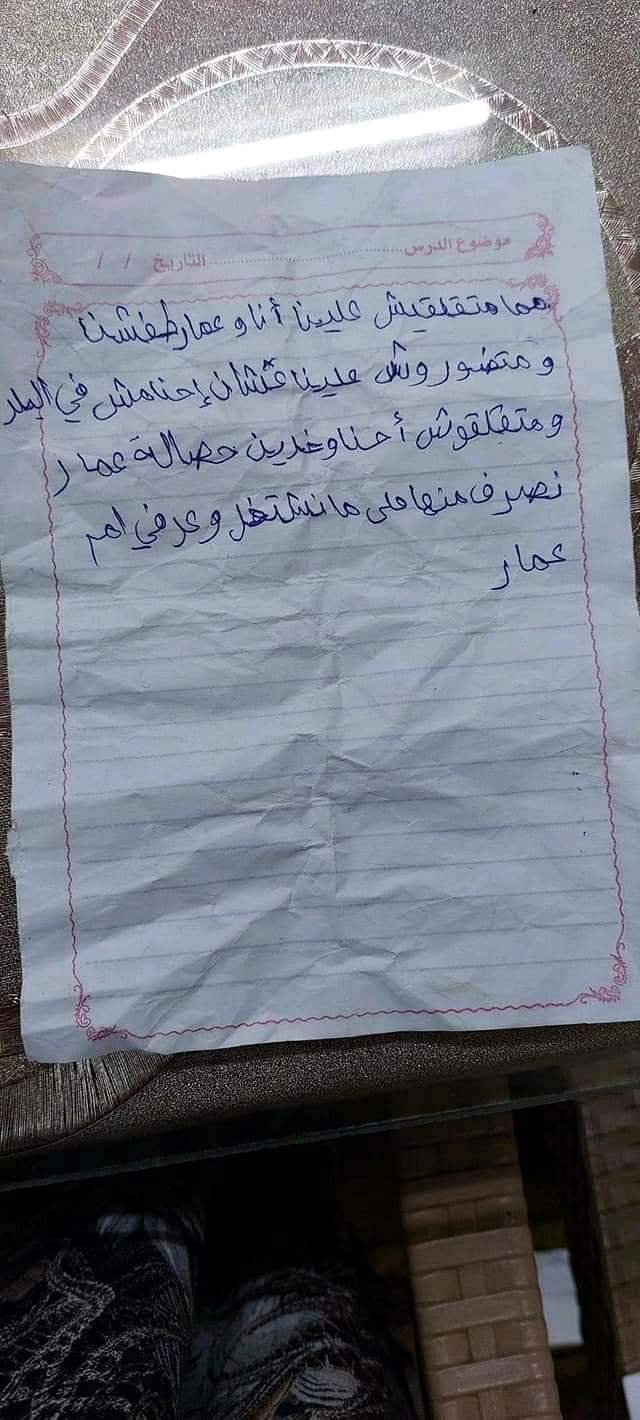 موضوع الدرس ........................ التاريخ / /
مما متقلقيش علينا أنا و عمار طفشنا
و متضوروش علينا عشان إحنا مش في البلد
و متقلقوش أحنا وخدين حصالة عمار
نصرف منها على ما نشتغل وعرفي ام
عمار